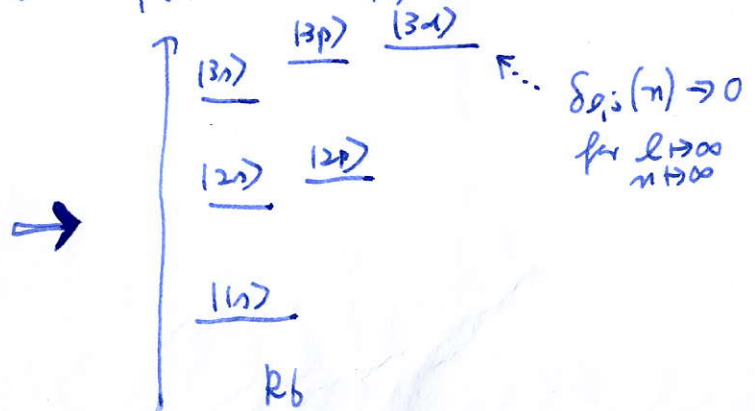 |3s⟩ |3p⟩ |3d⟩
δ_{l,j}(n) → 0
for l ↦ ∞
n ↦ ∞
|2s⟩ |2p⟩
|1s⟩
Rb